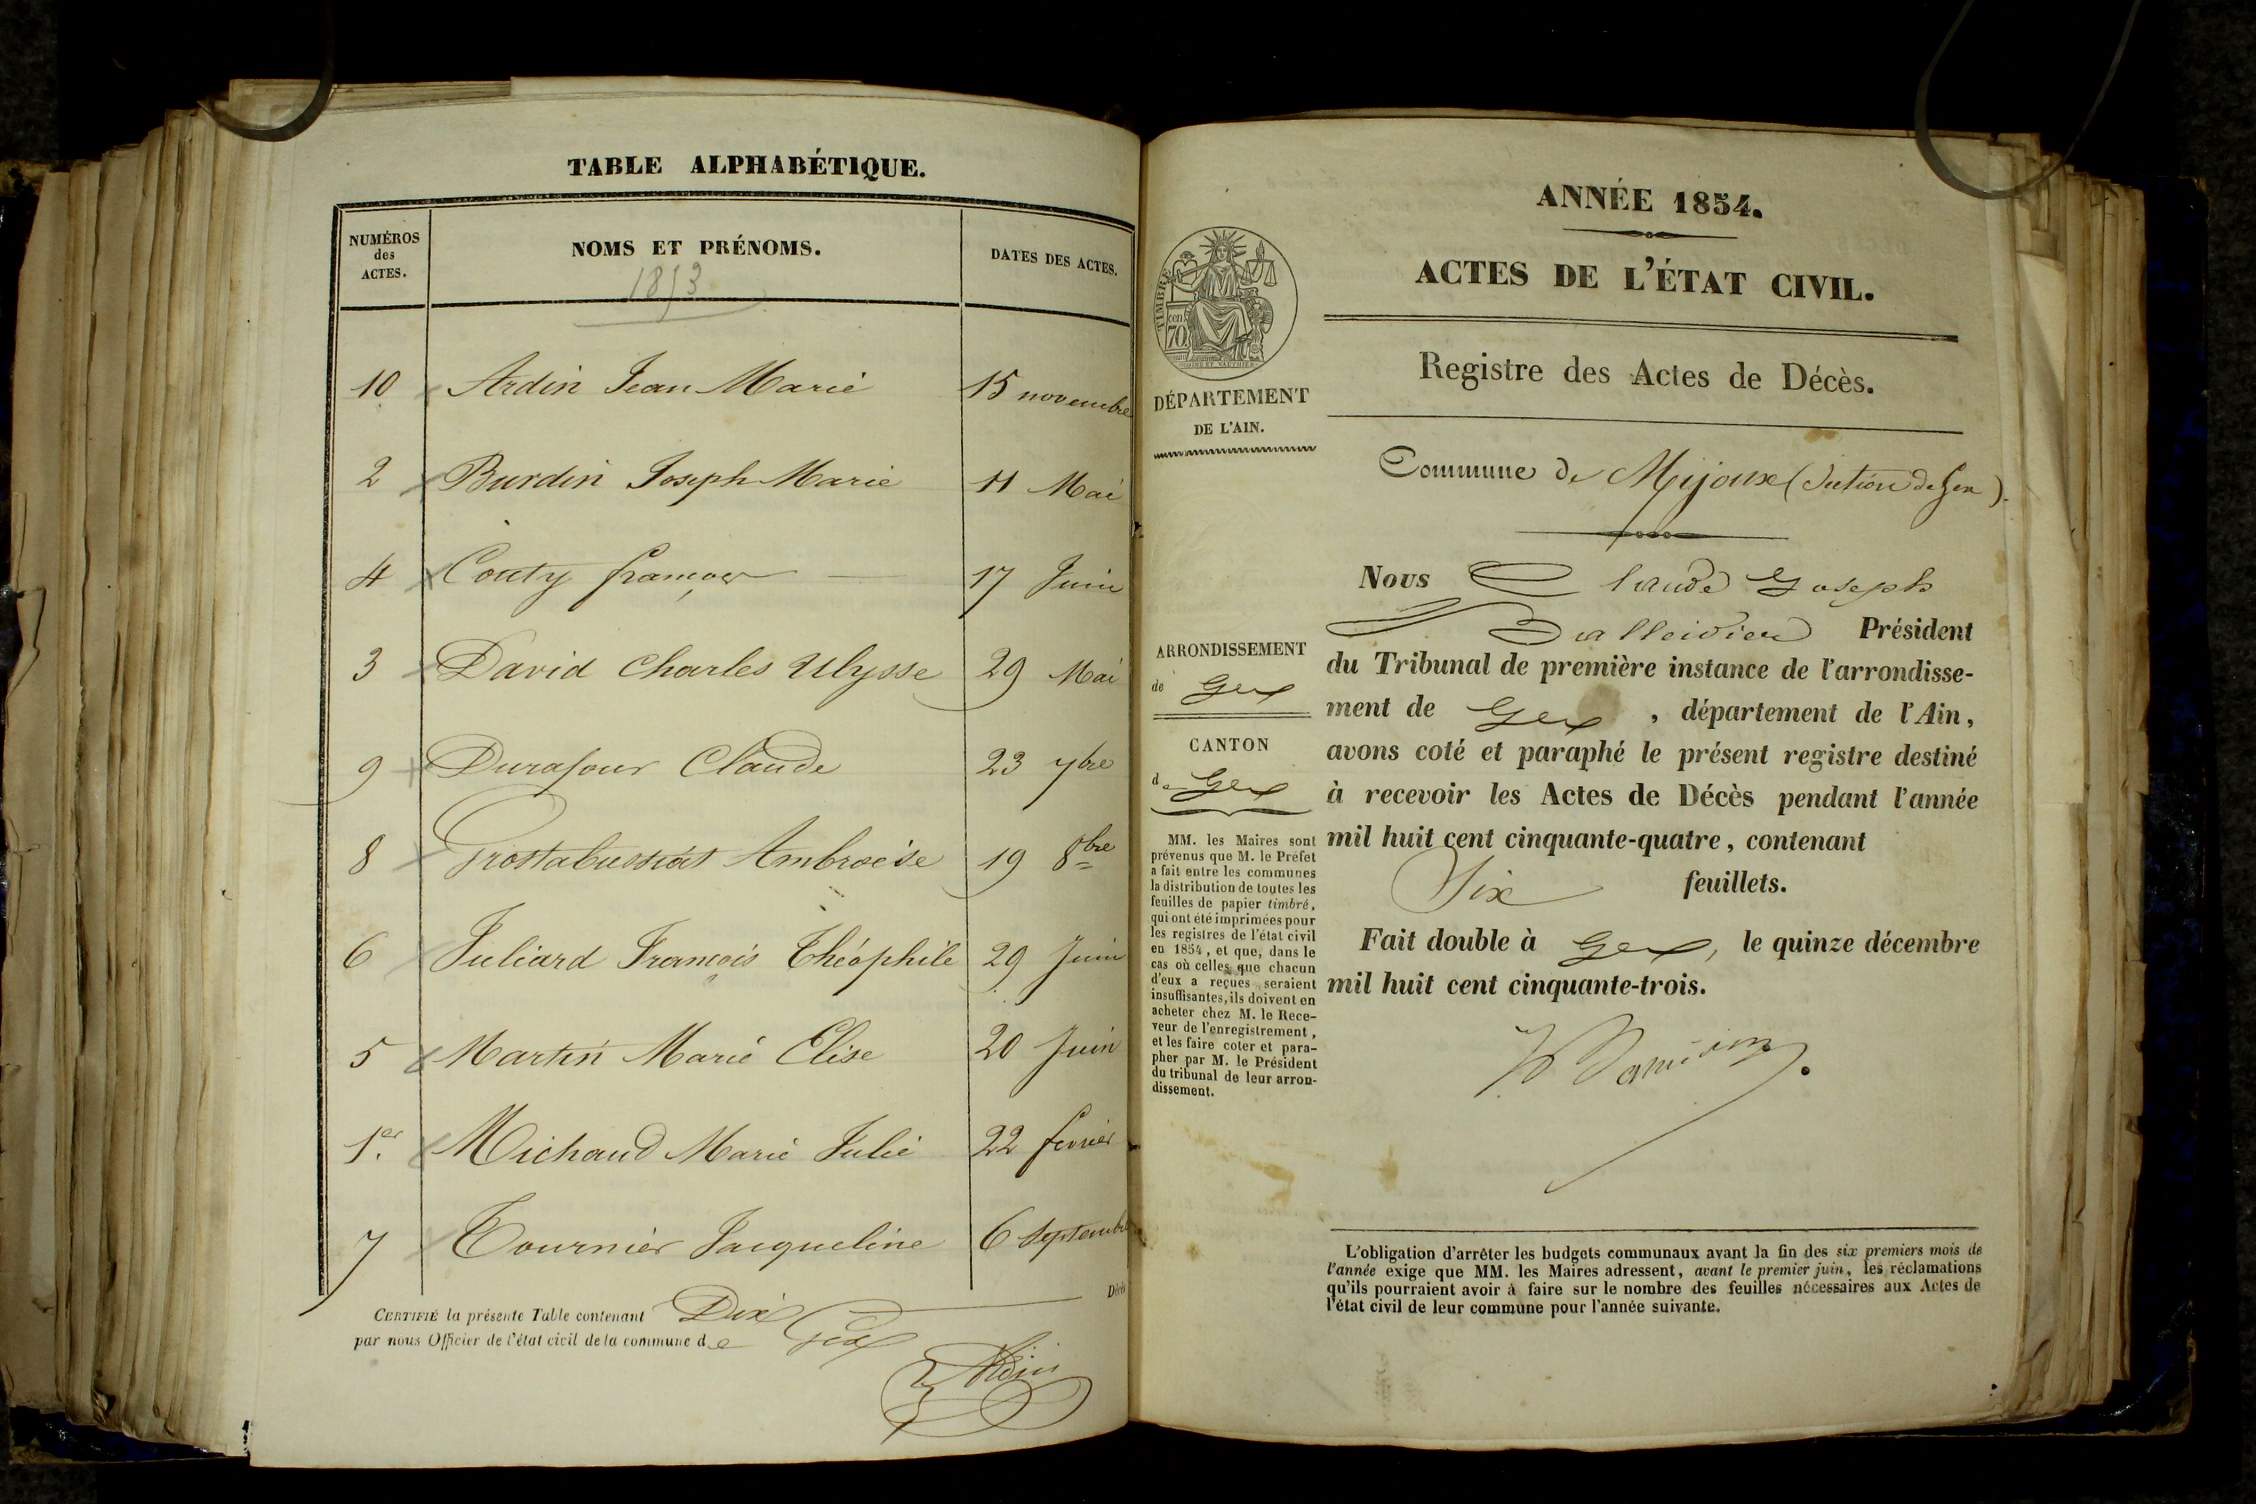 TABLE ALPHABÉTIQUE.
NUMÉROS des ACTES.
NOMS ET PRÉNOMS.
DATES DES ACTES.
1853
10 Ardin Jean Marie 15 novembre
2 Burdin Joseph Marie 11 Mai
4 Couty françois 17 Juin
3 David Charles Ulysse 29 Mai
9 Durafour Claude 23 7bre
8 Ambroise 19 8bre
6 Juliard François Théophile 29 Juin
5 Martin Marie Elise 20 Juin
1er Michaud Marie Julie 22 fevrier
7 Tournier Jacqueline 6 Septembre
Décès
CERTIFIÉ la présente Table contenant Dix
par nous Officier de l'état civil de la commune de Gex
ANNÉE 1854.
ACTES DE L'ÉTAT CIVIL.
TIMBRE
cen. 70
DÉPARTEMENT
DE L'AIN.
Registre des Actes de Décès.
Commune de Mijoux (Section de Gex).
Nous Claude Joseph
Président
du Tribunal de première instance de l'arrondisse-
ment de Gex, département de l'Ain,
avons coté et paraphé le présent registre destiné
à recevoir les Actes de Décès pendant l'année
mil huit cent cinquante-quatre, contenant
Six feuillets.
Fait double à Gex, le quinze décembre
mil huit cent cinquante-trois.
ARRONDISSEMENT
de Gex
CANTON
de Gex
MM. les Maires sont
prévenus que M. le Préfet
a fait entre les communes
la distribution de toutes les
feuilles de papier timbré,
qui ont été imprimées pour
les registres de l'état civil
en 1854, et que, dans le
cas où celles que chacun
d'eux a reçues seraient
insuffisantes, ils doivent en
acheter chez M. le Rece-
veur de l'enregistrement,
et les faire coter et para-
pher par M. le Président
du tribunal de leur arron-
dissement.
L'obligation d'arrêter les budgets communaux avant la fin des six premiers mois de
l'année exige que MM. les Maires adressent, avant le premier juin, les réclamations
qu'ils pourraient avoir à faire sur le nombre des feuilles nécessaires aux Actes de
l'état civil de leur commune pour l'année suivante.